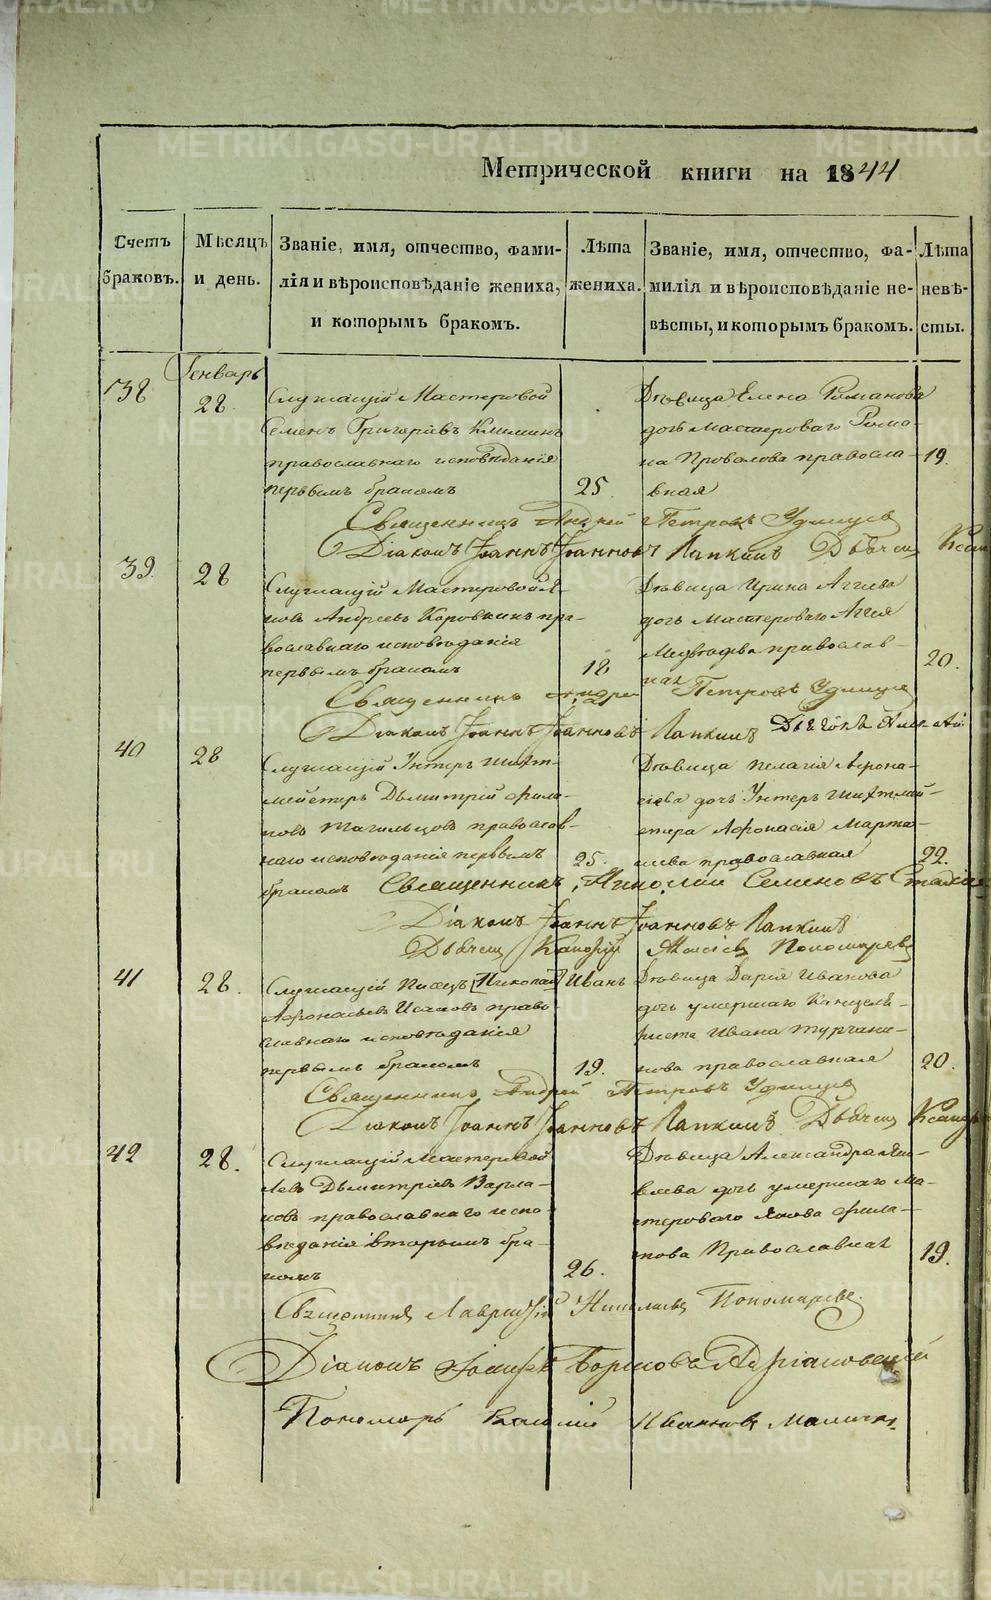 Метрической книги на 1844
Счетъ браковъ.
Мѣсяцъ и день.
Званіе, имя, отчество, фами-
лія и вѣроисповѣданіе жениха,
и которымъ бракомъ.
Лѣта жениха.
Званіе, имя, отчество, фа-
милія и вѣроисповѣданіе не-
вѣсты, и которымъ бракомъ.
Лѣта невѣ-
сты.
Генварь
138
28
Служащій Мастеровой
Семенъ Григорьевъ
православнаго исповѣданія
первымъ бракомъ
25
Дѣвица Елена Романова
дочь мастероваго Рома-
на православ-
вная
19.
Священникъ Андрей Петровъ Удинцев
Діаконъ Іоаннъ Іоанновъ Лапкинъ Дьячекъ
39
28
Служащій Мастеровой Я-
ковъ Андреевъ Коровкинъ пра-
вославнаго исповѣданія
первымъ бракомъ
18
Дѣвица Ирина Аггеева
дочь Мастероваго Аггея
Медведева православ-
ная
20.
Священникъ Андрей Петровъ Удинцев
Діаконъ Іоаннъ Іоанновъ Лапкинъ
40
28
Служащій Унтеръ шихт-
мейстеръ Дьмитрій Фили-
повъ Тагильцовъ православ-
наго исповѣданія первымъ
бракомъ
25.
Дѣвица Пелагия Афона-
сьева дочь Унтеръ шихтмей-
стера Афонасія
православная
22.
Священникъ Николай Семеновъ
Діаконъ Іоаннъ Іоанновъ Лапкинъ
Дьячекъ Пономаревъ
41
28.
Служащій Писецъ [Николай] Иванъ
Афонасьевъ Исаковъ право-
славнаго исповѣданія
первымъ бракомъ
19.
Дѣвица Дарія Иванова
дочь умершаго Канцеля-
риста Ивана Турчани-
нова православная
20.
Священникъ Андрей Петровъ Удинцев
Діаконъ Іоаннъ Іоанновъ Лапкинъ Дьячекъ
42
28.
Служащій Мастеровой
Левъ Дьмитріевъ Варла-
ковъ православнаго испо-
вѣданія вторымъ бра-
комъ
26.
Дѣвица Александра Яко-
влева дочь умершаго Ма-
стероваго Якова Фили-
пова Православная
19.
Священникъ Лаврентій Николаевъ Пономаревъ.
Діаконъ Іосифъ Борисовъ Адріановскій
Пономарь Василій Ивановъ
METRIKI.GASO-URAL.RU